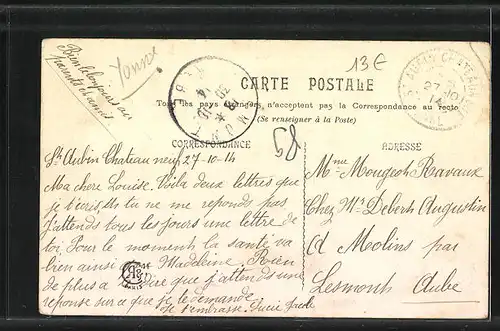 Bien le bonjours aux
parents et amis
Yonne
13€
CARTE POSTALE
Tous les pays étrangers, n'acceptent pas la Correspondance au recto
(Se renseigner à la Poste)
CORRESPONDANCE
58
ADRESSE
St Aubin Chateau neuf 27-10-14
Ma chere Louise. Voila deux lettres que
je t'ecris, et tu ne me reponds pas
j'attends tous les jours une lettre de
toi. Pour le moment la santé va
bien ainsi que Madeleine. Rien
de plus a dire que j'attends une
reponse sur ce que je te demande.
Je t'embrasse. Lucie
Mme Mougeot Ravaux
Chez Mr Debert Augustin
à Molins par
Lesmont Aube